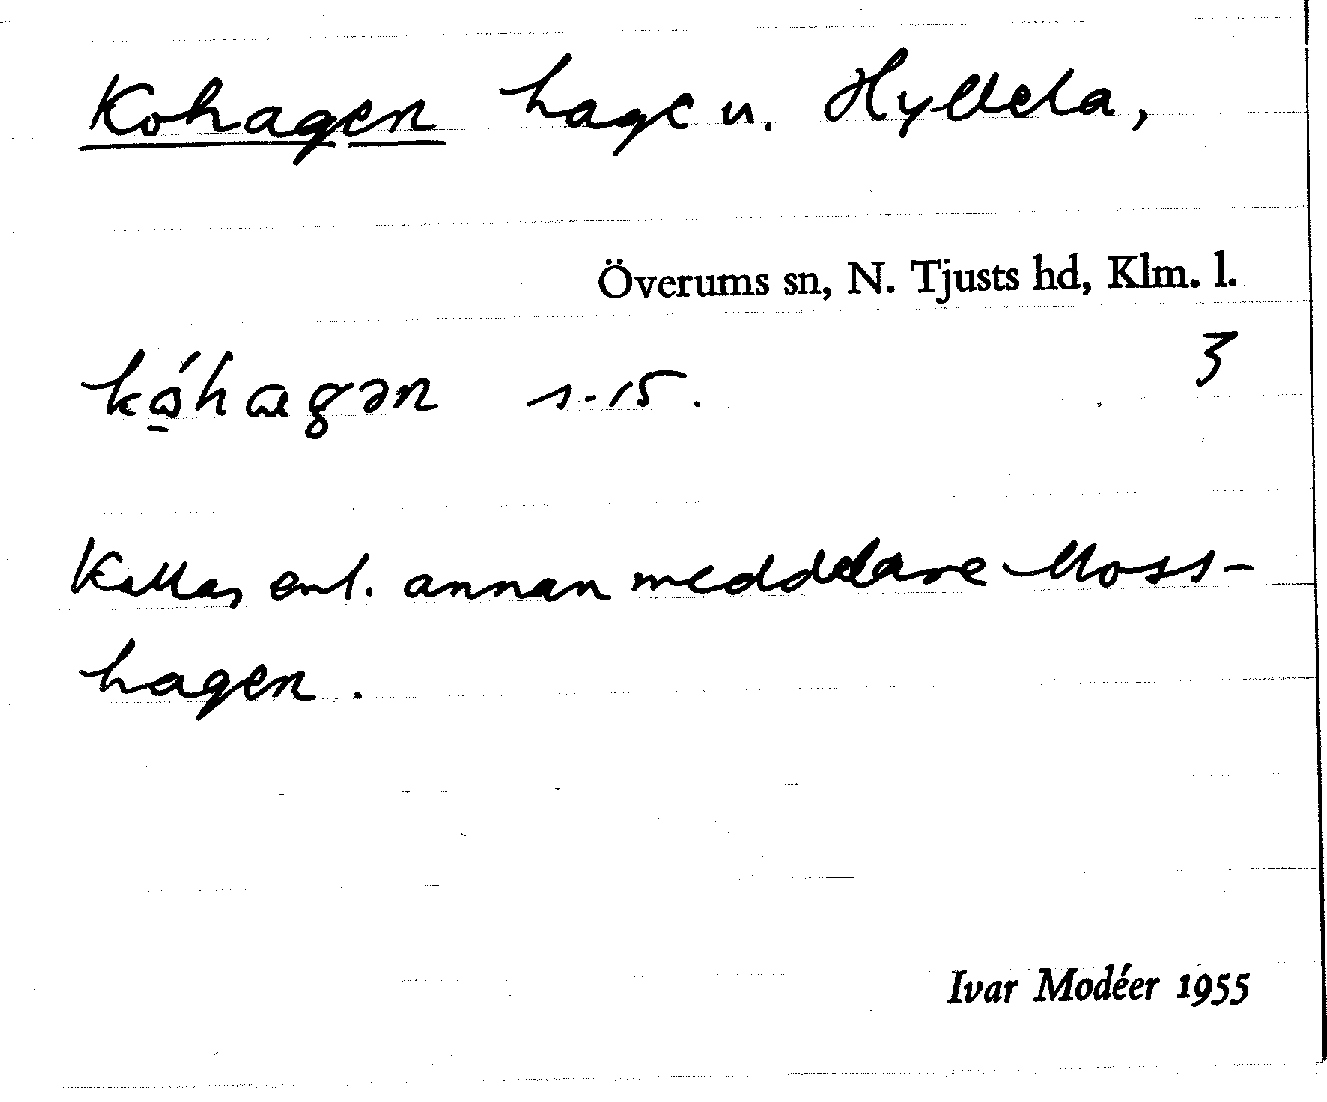 Kohagen hage u. Hyllela,
Överums sn, N. Tjusts hd, Klm. l.
3
1-15.
Kallas enl. annan meddelare Moss-
hagen.
Ivar Modéer 1955